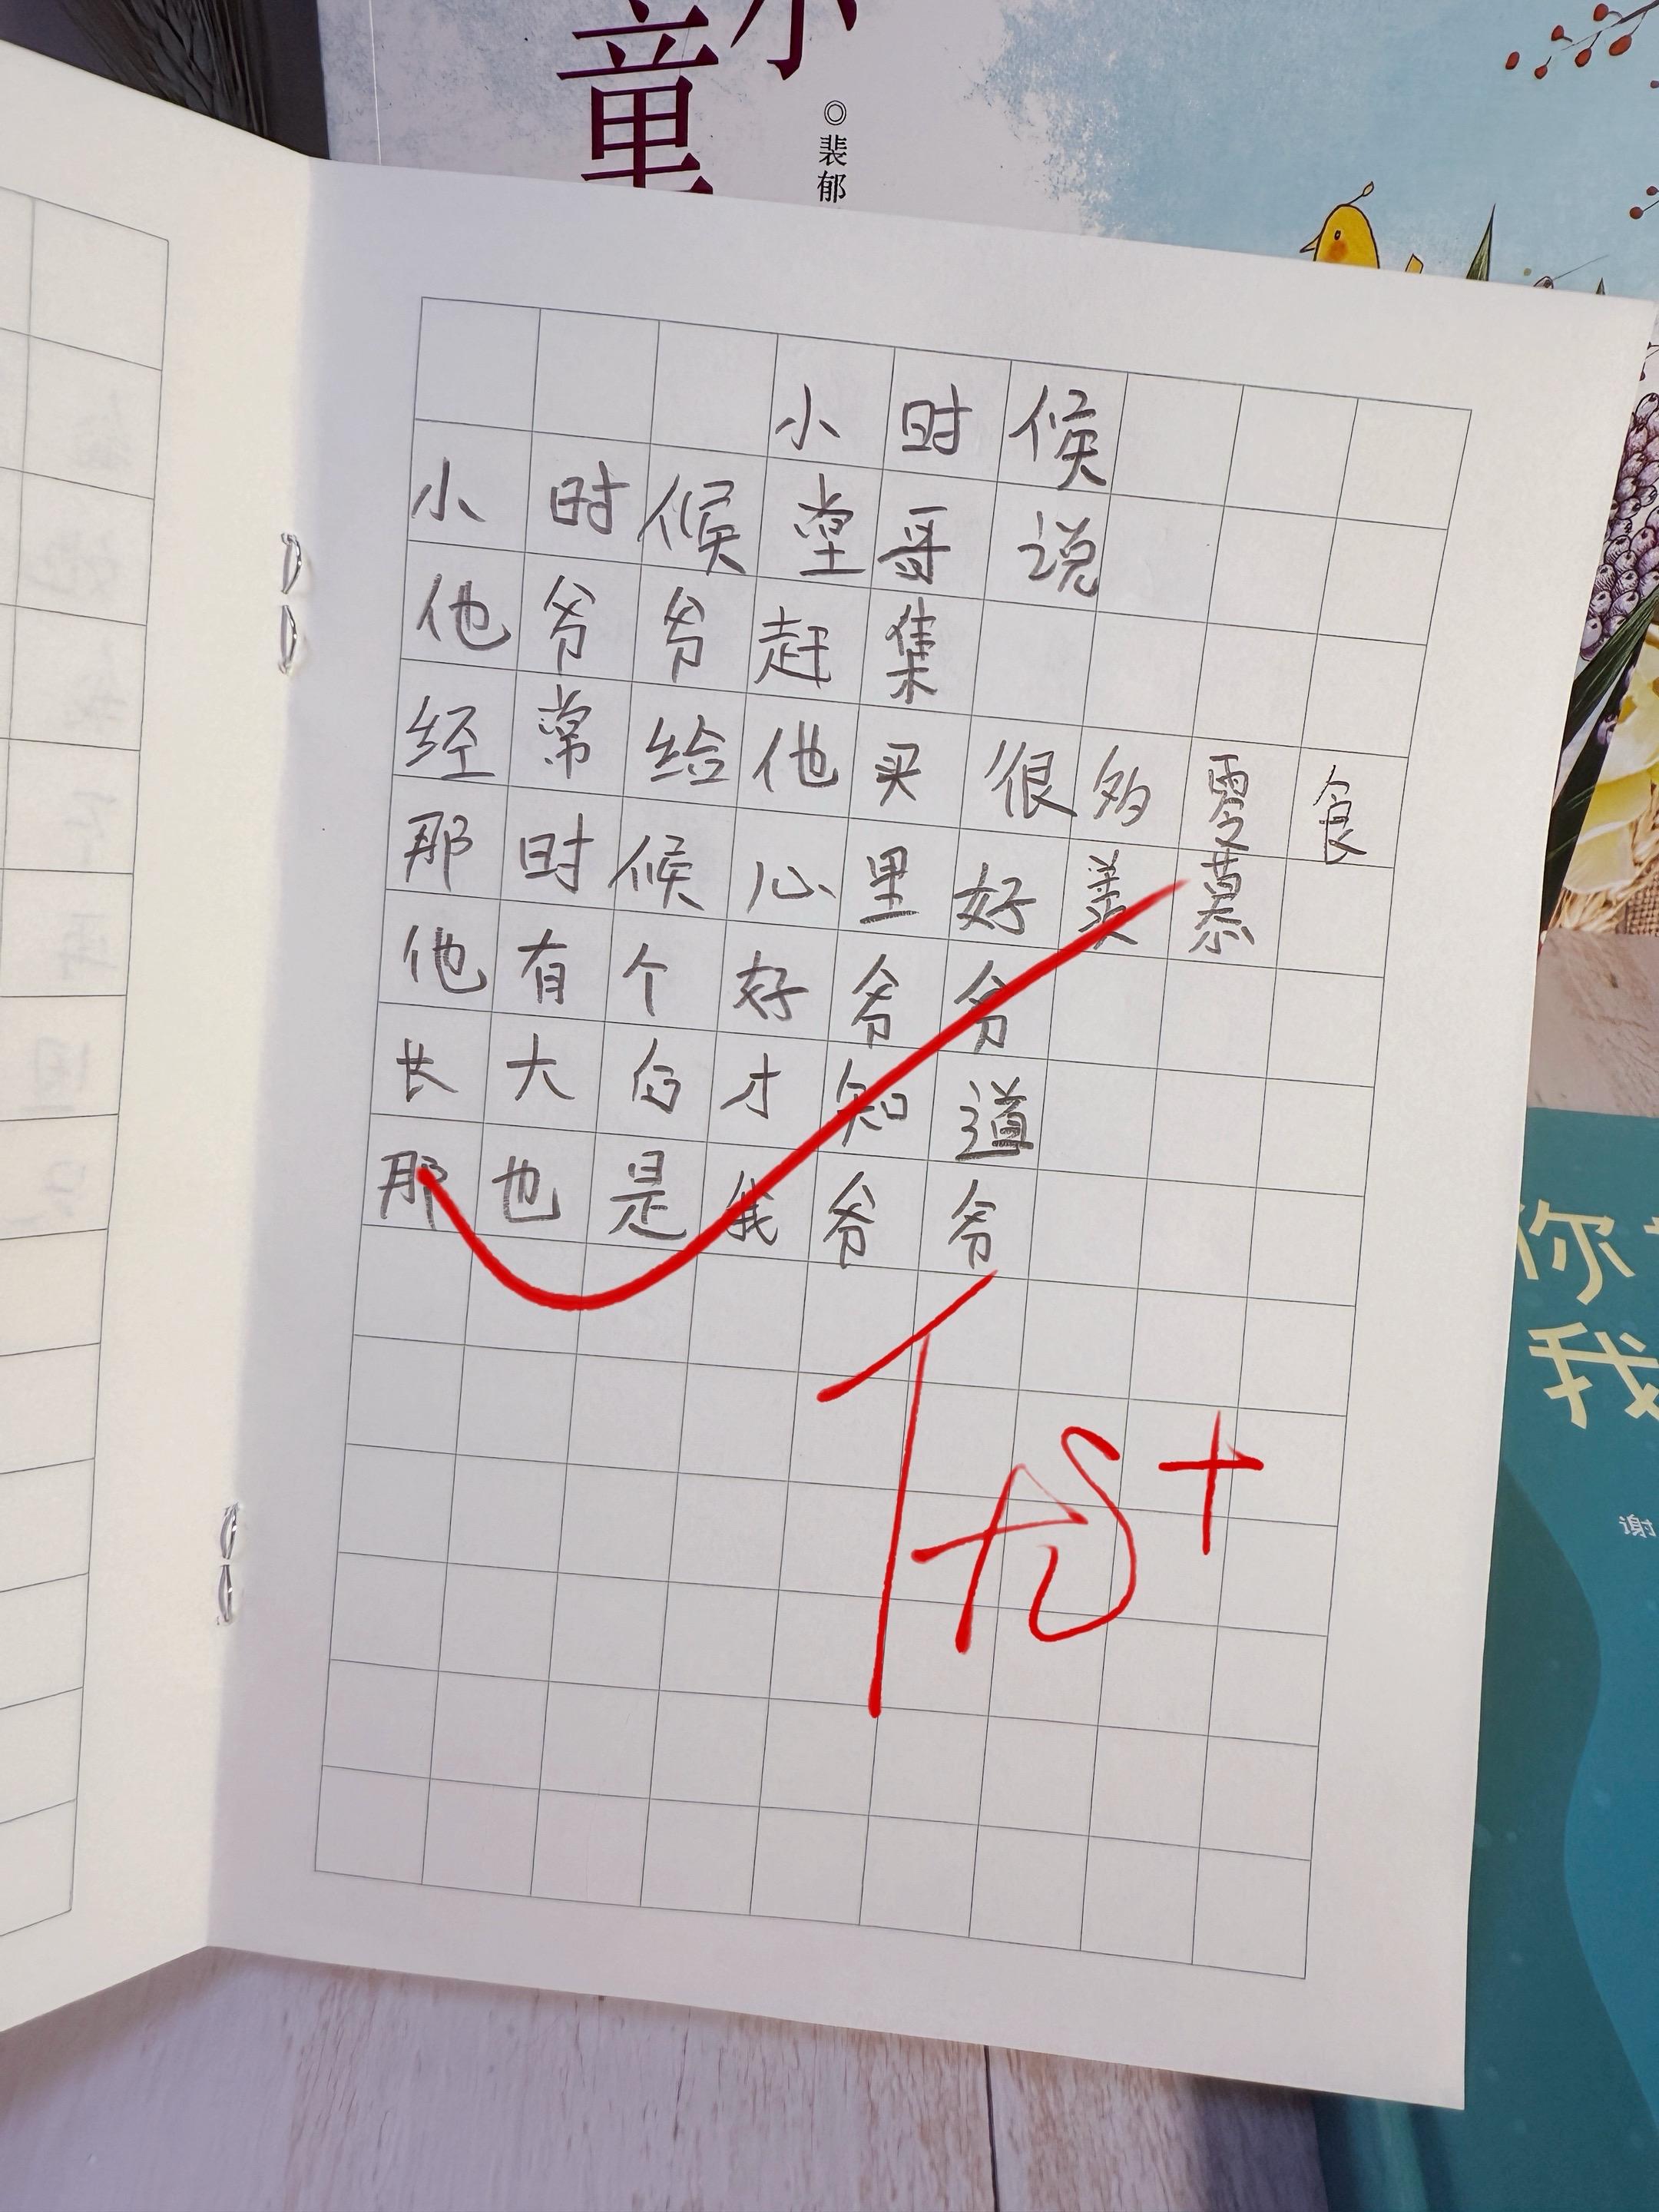 小
童
◎裴郁
小时候
小时候堂哥说
他爷爷赶集
经常给他买很多零食
那时候心里好羡慕
他有个好爷爷
长大后才知道
那也是我爷爷
优+
你
我
谢